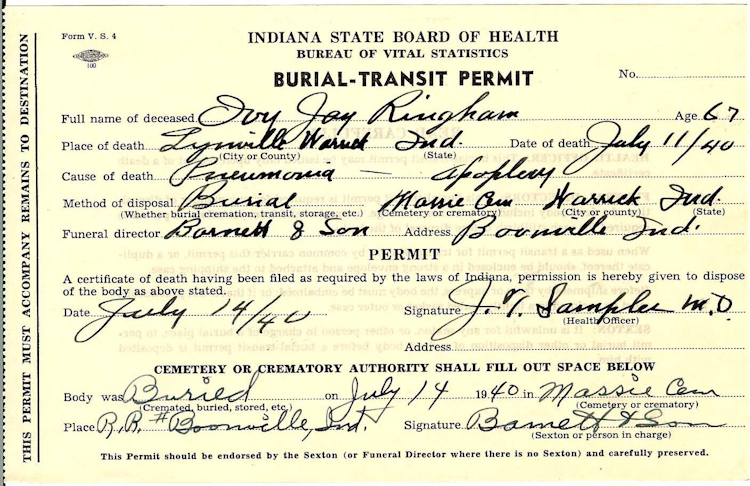 THIS PERMIT MUST ACCOMPANY REMAINS TO DESTINATION
Form V. S. 4
100
INDIANA STATE BOARD OF HEALTH
BUREAU OF VITAL STATISTICS
BURIAL-TRANSIT PERMIT
No.
Full name of deceased Ivy Jay Ringham Age 67
Place of death Lynville Warrick Ind. Date of death July 11/40
(City or County) (State)
Cause of death Pneumonia — apoplexy
Method of disposal Burial Massie Cem Warrick Ind.
(Whether burial cremation, transit, storage, etc.) (Cemetery or crematory) (City or county) (State)
Funeral director Barnett & Son Address Boonville Ind.
PERMIT
A certificate of death having been filed as required by the laws of Indiana, permission is hereby given to dispose
of the body as above stated.
Date July 14/40 Signature J. T. Samples M.D
(Health Officer)
Address
CEMETERY OR CREMATORY AUTHORITY SHALL FILL OUT SPACE BELOW
Body was Buried on July 14 1940 in Massie Cem
(Cremated, buried, stored, etc.) (Cemetery or crematory)
Place R.R. # Boonville, Ind. Signature Barnett & Son
(Sexton or person in charge)
This Permit should be endorsed by the Sexton (or Funeral Director where there is no Sexton) and carefully preserved.